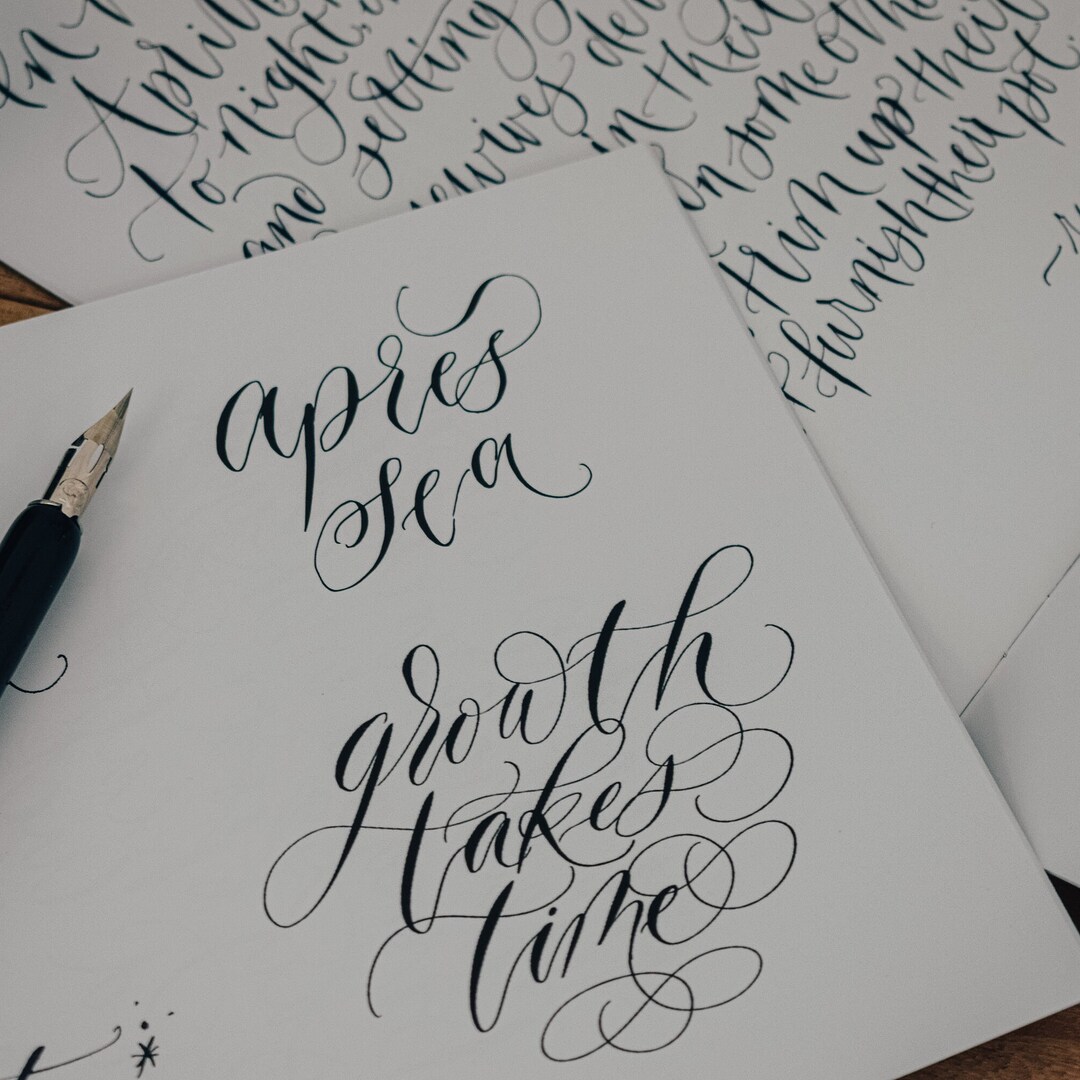 In
April
to night,
and setting
in their
on some other
trim up their
furnish their pot.
apres
sea
growth
takes
time